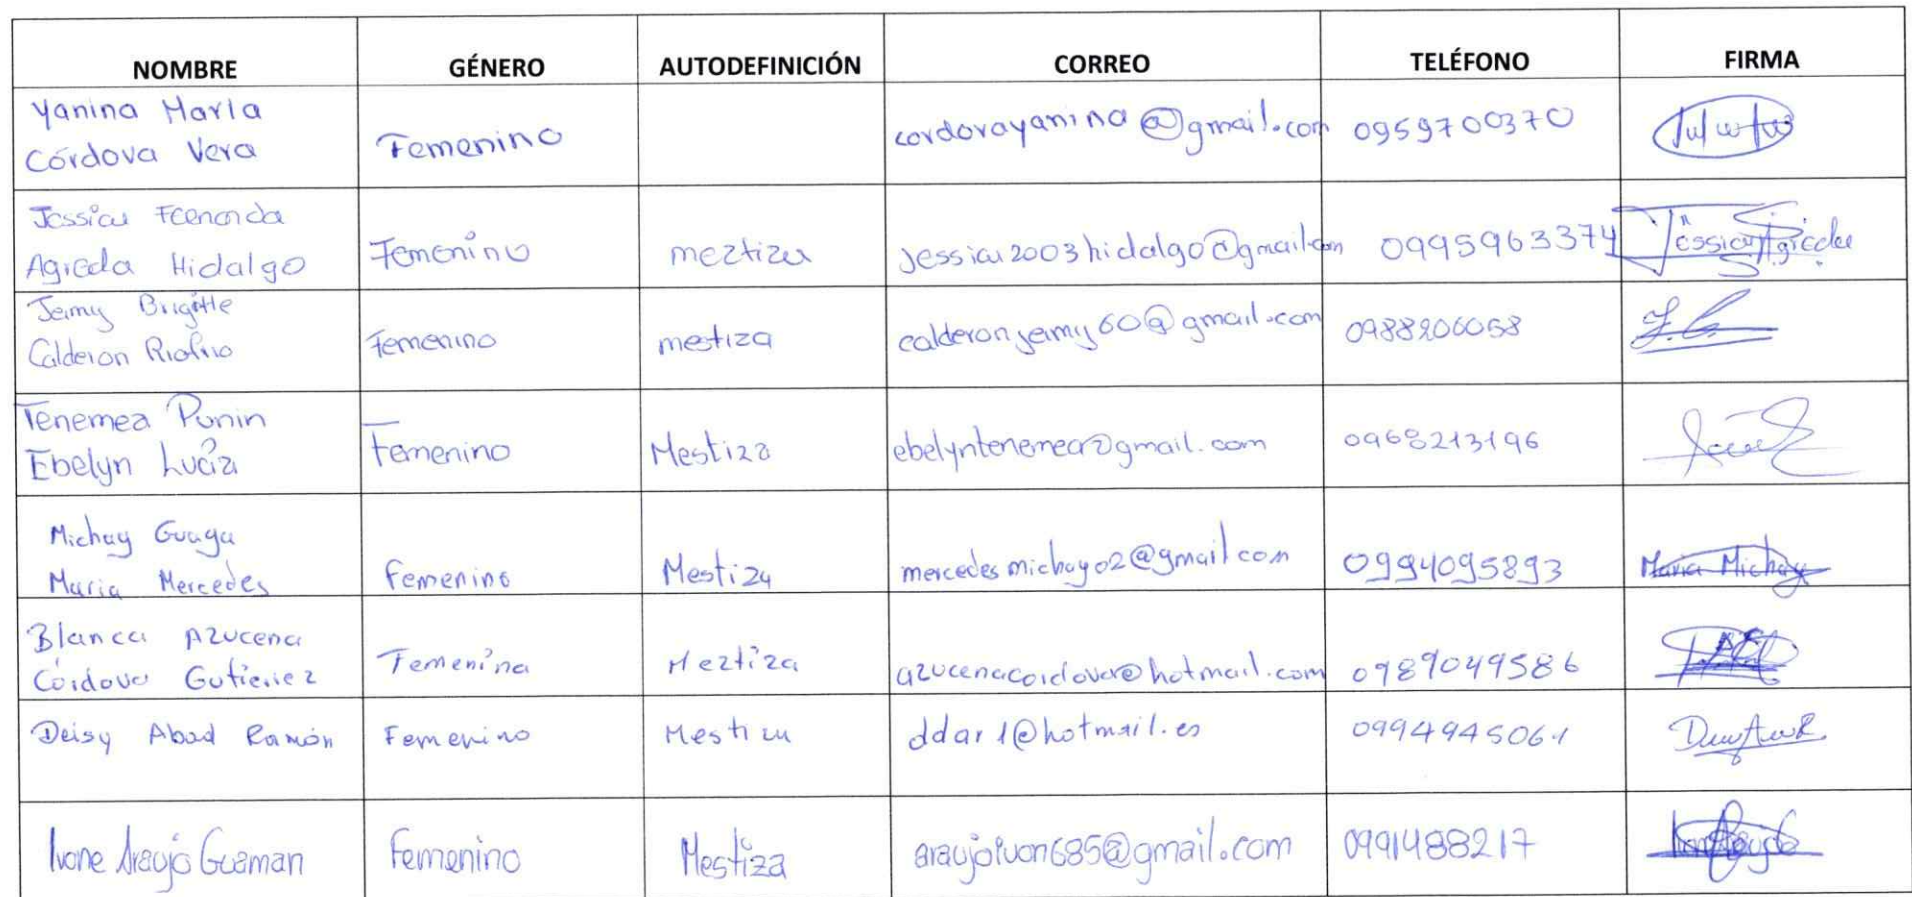 NOMBRE GÉNERO AUTODEFINICIÓN CORREO TELÉFONO FIRMA
Yanina María
Córdova Vera
Femenino
cordovayanina@gmail.com
0959700370
Jessica Fernanda
Agreda Hidalgo
Femenino
meztiza
jessica2003hidalgo@gmail.com
0995963374
Jessica Agreda
Jeimy Brigitte
Calderon Riofrio
Femenino
mestiza
calderonjeimy60@gmail.com
0988206058
Tenemea Punin
Ebelyn Lucía
Femenino
Mestiza
ebelyntenemea@gmail.com
0968213196
Michay Guaga
Maria Mercedes
Femenino
Mestiza
mercedesmichay02@gmail.com
0994095893
Maria Michay
Blanca Azucena
Córdova Gutierrez
Femenina
Meztiza
azucenacordova@hotmail.com
0989049586
Deisy Abad Ramón
Femenino
Mestiza
ddar1@hotmail.es
0994945061
Ivone Araujo Guaman
Femenino
Mestiza
araujoivon685@gmail.com
0991488217